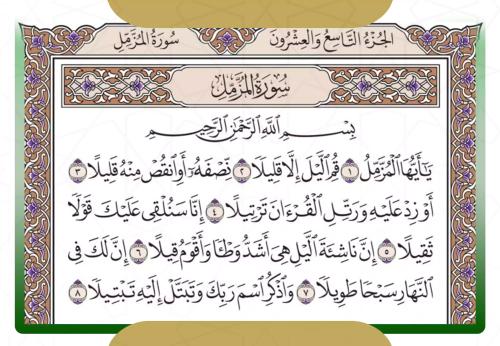 الجُزْءُ التَّاسِعُ وَالعِشْرُونَ
سُورَةُ المُزَّمِّلِ
سُورَةُ المُزَّمِّلِ
بِسْمِ ٱللَّهِ ٱلرَّحْمَٰنِ ٱلرَّحِيمِ
يَٰٓأَيُّهَا ٱلْمُزَّمِّلُ ١ قُمِ ٱلَّيْلَ إِلَّا قَلِيلًا ٢ نِّصْفَهُۥٓ أَوِ ٱنقُصْ مِنْهُ قَلِيلًا ٣
أَوْ زِدْ عَلَيْهِ وَرَتِّلِ ٱلْقُرْءَانَ تَرْتِيلًا ٤ إِنَّا سَنُلْقِى عَلَيْكَ قَوْلًا
ثَقِيلًا ٥ إِنَّ نَاشِئَةَ ٱلَّيْلِ هِىَ أَشَدُّ وَطْـًٔا وَأَقْوَمُ قِيلًا ٦ إِنَّ لَكَ فِى
ٱلنَّهَارِ سَبْحًا طَوِيلًا ٧ وَٱذْكُرِ ٱسْمَ رَبِّكَ وَتَبَتَّلْ إِلَيْهِ تَبْتِيلًا ٨